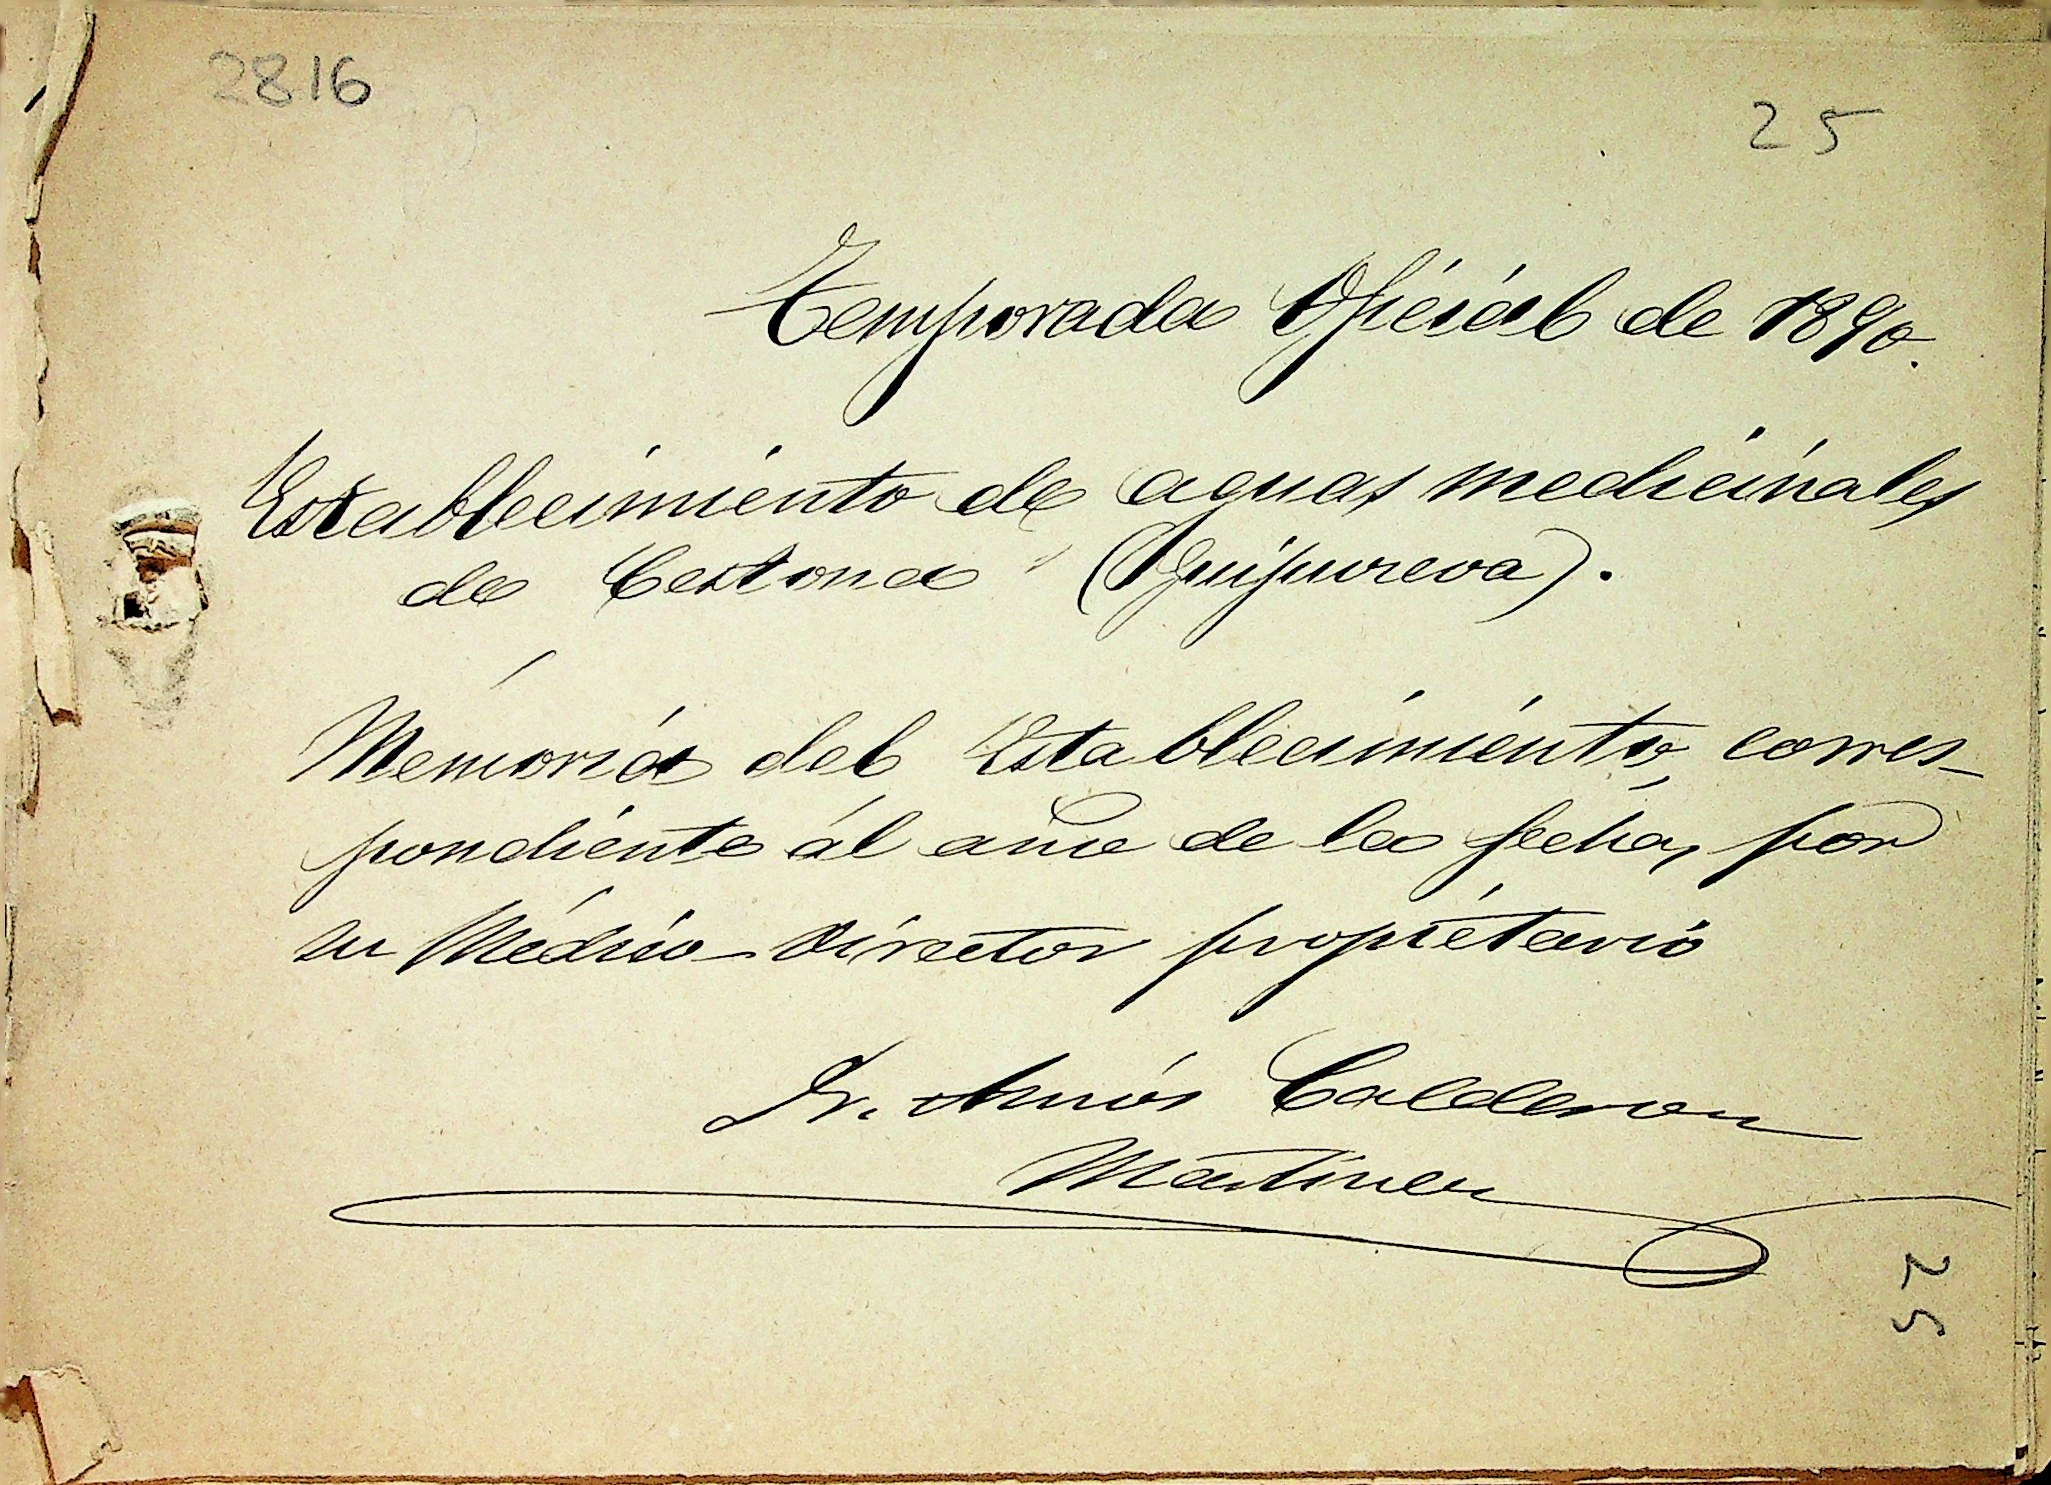 2816
25
Temporada Oficial de 1890.
Establecimiento de aguas medicinales
de Cestona (Guipuzcoa).
Memoria del Establecimiento, corres-
pondiente al año de la fecha, por
su Médico-Director propietario
Dr. Amós Calderon
Martinez
25